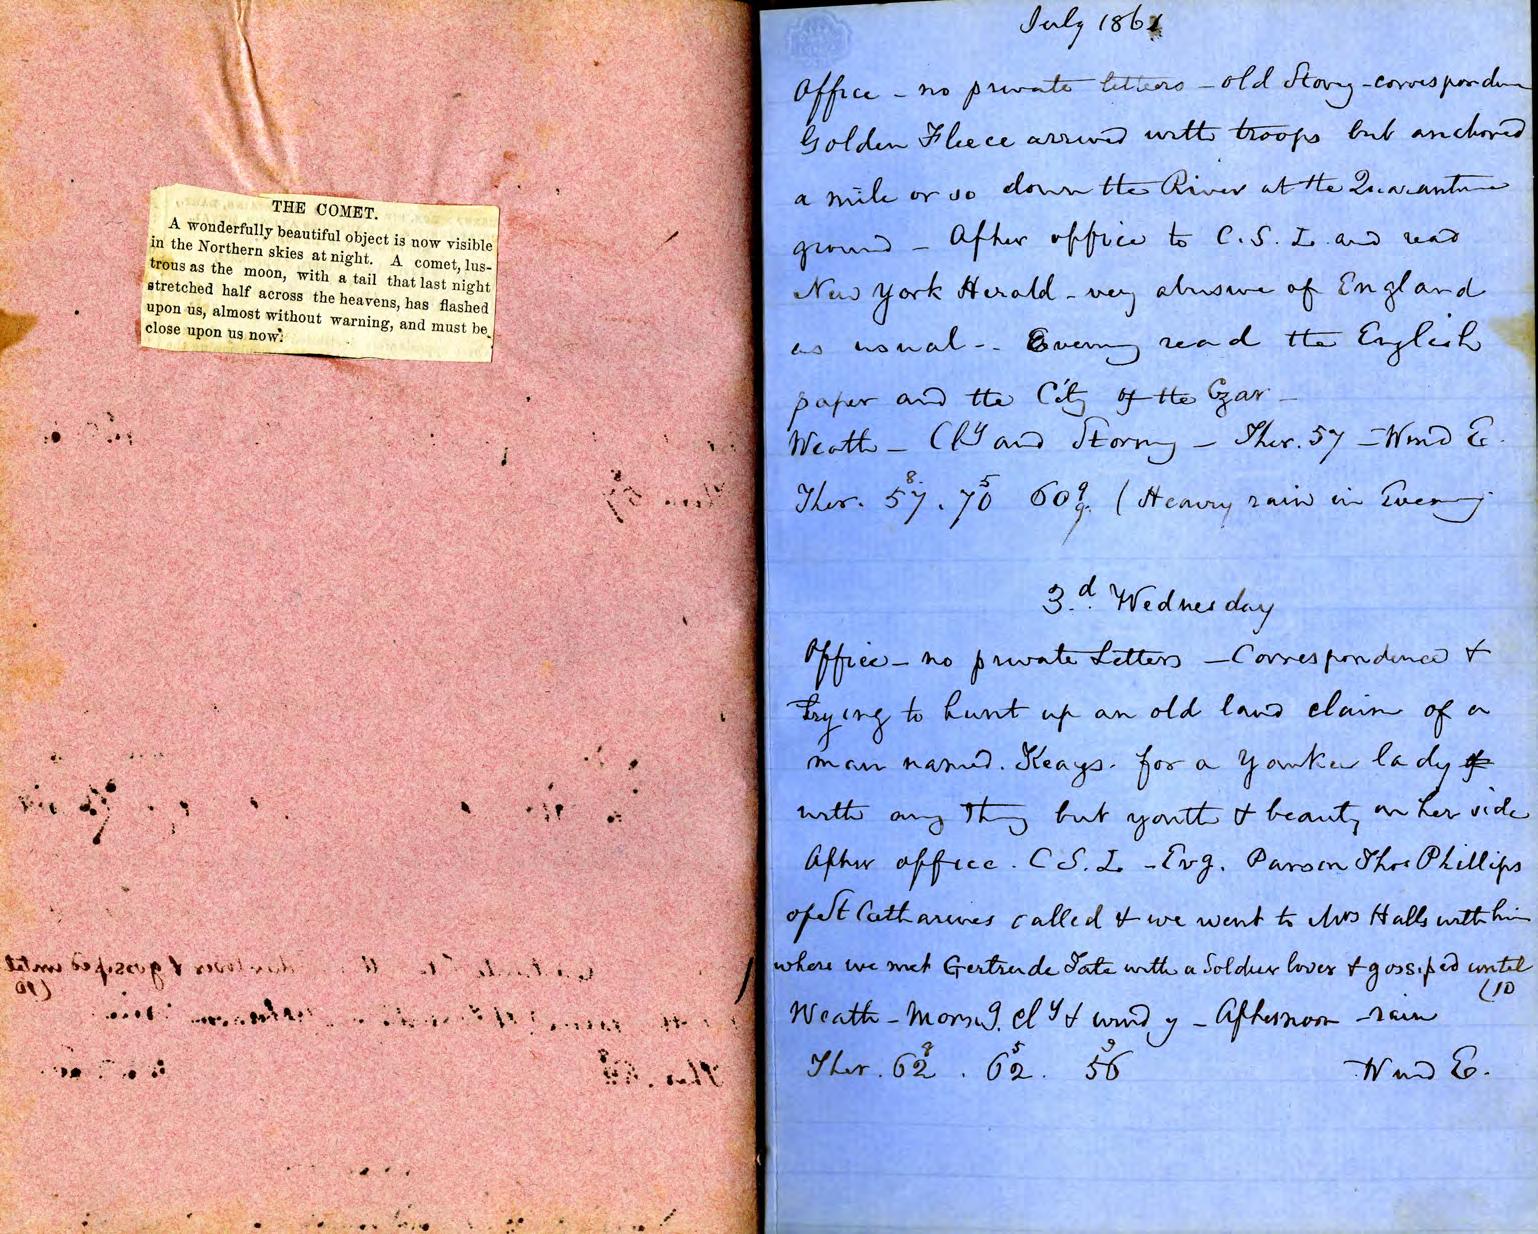 THE COMET.
A wonderfully beautiful object is now visible
in the Northern skies at night. A comet, lus-
trous as the moon, with a tail that last night
stretched half across the heavens, has flashed
upon us, almost without warning, and must be
close upon us now.
July 1861
Office - no private letters - old Story - corresponden
Golden Fleece arrived with troops but anchored
a mile or so down the River at the Quarantine
ground - After office to C. S. L. and read
New York Herald - very abusive of England
as usual -. Evening read the English
paper and the City of the Czar -
Weath - Cly and Stormy - Ther. 57 - Wind E.
8. 5 9
Ther. 57 . 70 60 (Heavy rain in Evening
3.d Wednesday
Office - no private Letters - Correspondence &
trying to hunt up an old land claim of a
man named. Keays. for a Yankee lady
with any thing but youth & beauty on her side
After office. C S. L - Evg. Parson Thos Phillips
of St Catharines called & we went to Mrs Halls with him
where we met Gertrude Tate with a Soldier lover & gossiped until
(10
Weath - Morng. cly & windy - Afternoon rain
8 5 3
Ther. 62 . 62. 56 Wind E.